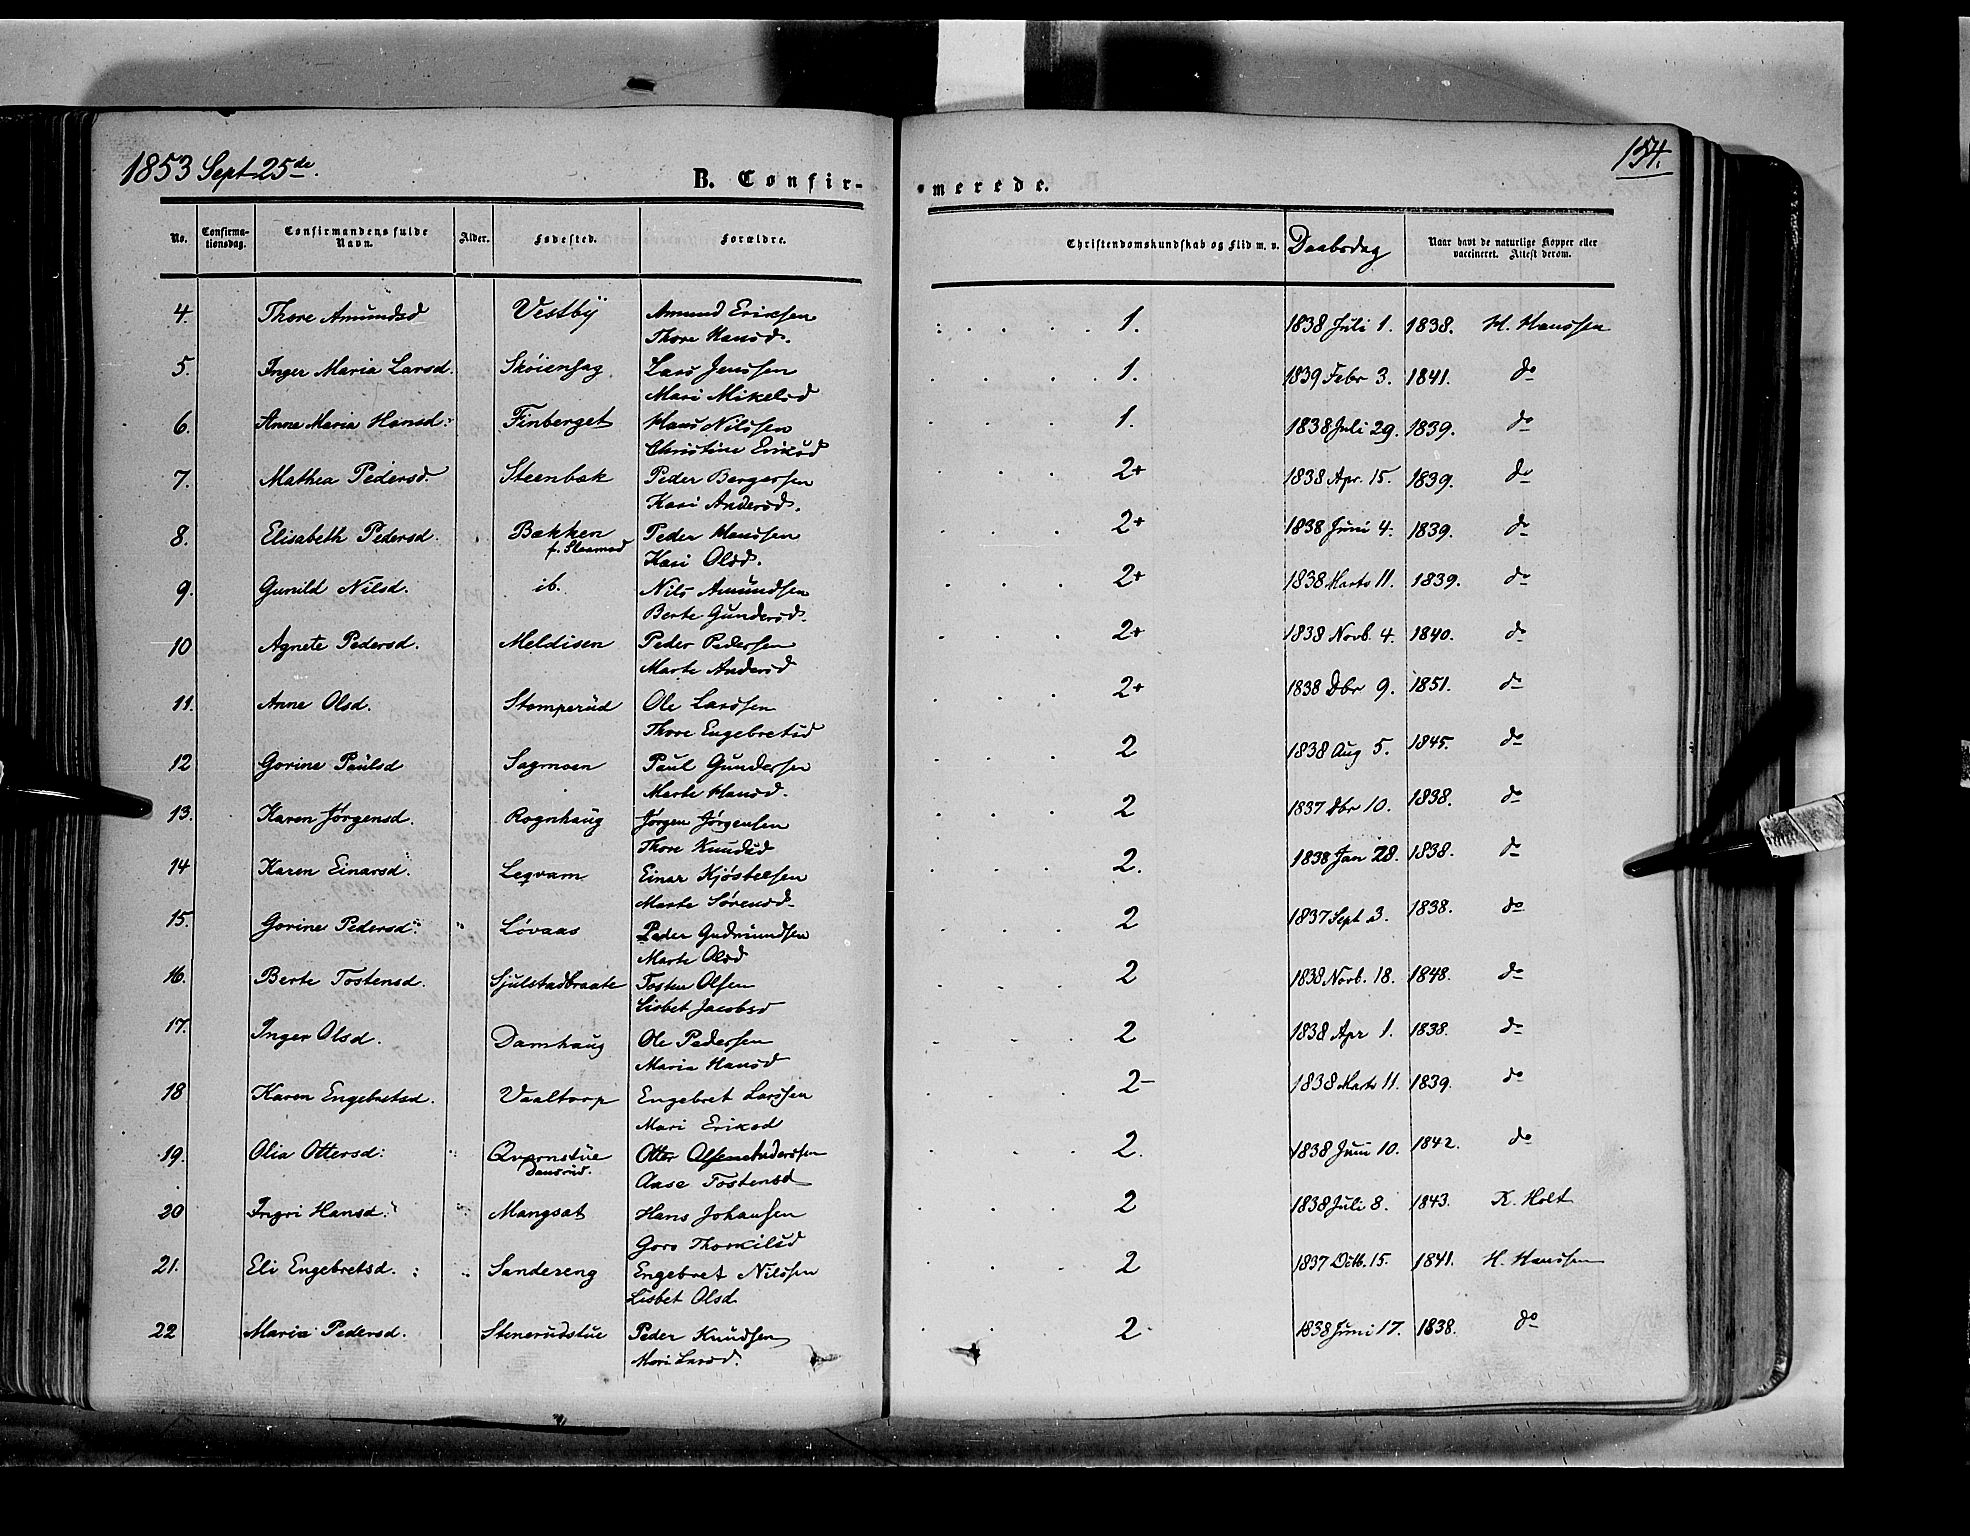 1853 Sept 25de.
154.
B. Confir-
merede.
No. Confirma-tionsdag. Confirmandens fulde Navn. Alder. Fødested. Forældre. Christendomskundskab og Flid m. v. Daabsdag Naar havt de naturlige Kopper eller vaccineret. Attest derom.
4. Thore Amundsd Vestby Amund Eriksen 1. 1838 Juli 1. 1838. H. Hanssen
Thore Hansd.
5. Inger Maria Larsd. Skøiensag Lars Jenssen 1. 1839 Febr 3. 1841. do
Mari Mikelsd
6. Anne Maria Hansd: Finberget Hans Nilssen 1. 1838 Juli 29. 1839. do
Christine Eriksd
7. Mathea Pedersd. Steenbæk Peder Bergersen 2+ 1838 Apr. 15. 1839. do
Kari Andersd.
8. Elisabeth Pedersd. Bakken Peder Hanssen 2+ 1838 Juni 4. 1839. do
f. Kari Olsd.
9. Gunild Nilsd. ib. Nils Amundsen 2+ 1838 Marts 11. 1839. do
Berte Gundersd.
10 Agnete Pedersd. Meldisen Peder Pedersen 2+ 1838 Novb. 4. 1840. do
Marte Andersd
11. Anne Olsd. Stomperud Ole Larssen 2+ 1838 Dbr 9. 1851. do
Thore Engebretsd
12 Gorine Paulsd Sagmoen Paul Gundersen 2 1838 Aug 5. 1845. do
Marte Hansd.
13. Karen Jørgensd. Rognhaug Jørgen Jørgensen 2 1837 Dbr 10. 1838. do
Thore Knudsd
14 Karen Einarsd. Legvam Einar Kjøstelsen 2. 1838 Jan 28. 1838. do
Marte Sørensd.
15. Gorine Pedersd: " Løvaas Peder Gudmundsen 2 1837 Sept 3. 1838. do
Marte Olsd
16. Berte Tostensd. Sjulstadbraate Tosten Olsen 2 1838 Novb. 18. 1848. do
Lisbet Jacobsd
17. Inger Olsd. Damhaug Ole Pedersen 2 1838 Apr 1. 1838. do
Maria Hansd
18 Karen Engebretsd. Vaaltorp Engebret Larssen 2- 1838 Marts 11. 1839. do
Mari Eriksd
19. Olia Ottersd: " Qvarnstue Otter Olsen Anderssen 2. 1838 Juni 10. 1842. do
Dansrud. Aase Tostensd
20 Ingri Hansd. " Mangsat Hans Johansen 2 1838 Juli 8. 1843. K. Holt
Goro Thorkilsd
21. Eli Engebretsd. : " Sandereng Engebret Nilssen 2 1837 Octb. 15. 1841. H. Hanssen
Lisbet Olsd
22 Maria Pedersd. Stenerudstue Peder Knudsen 2 1838 Juni 17. 1838. do
Mari Larsd.